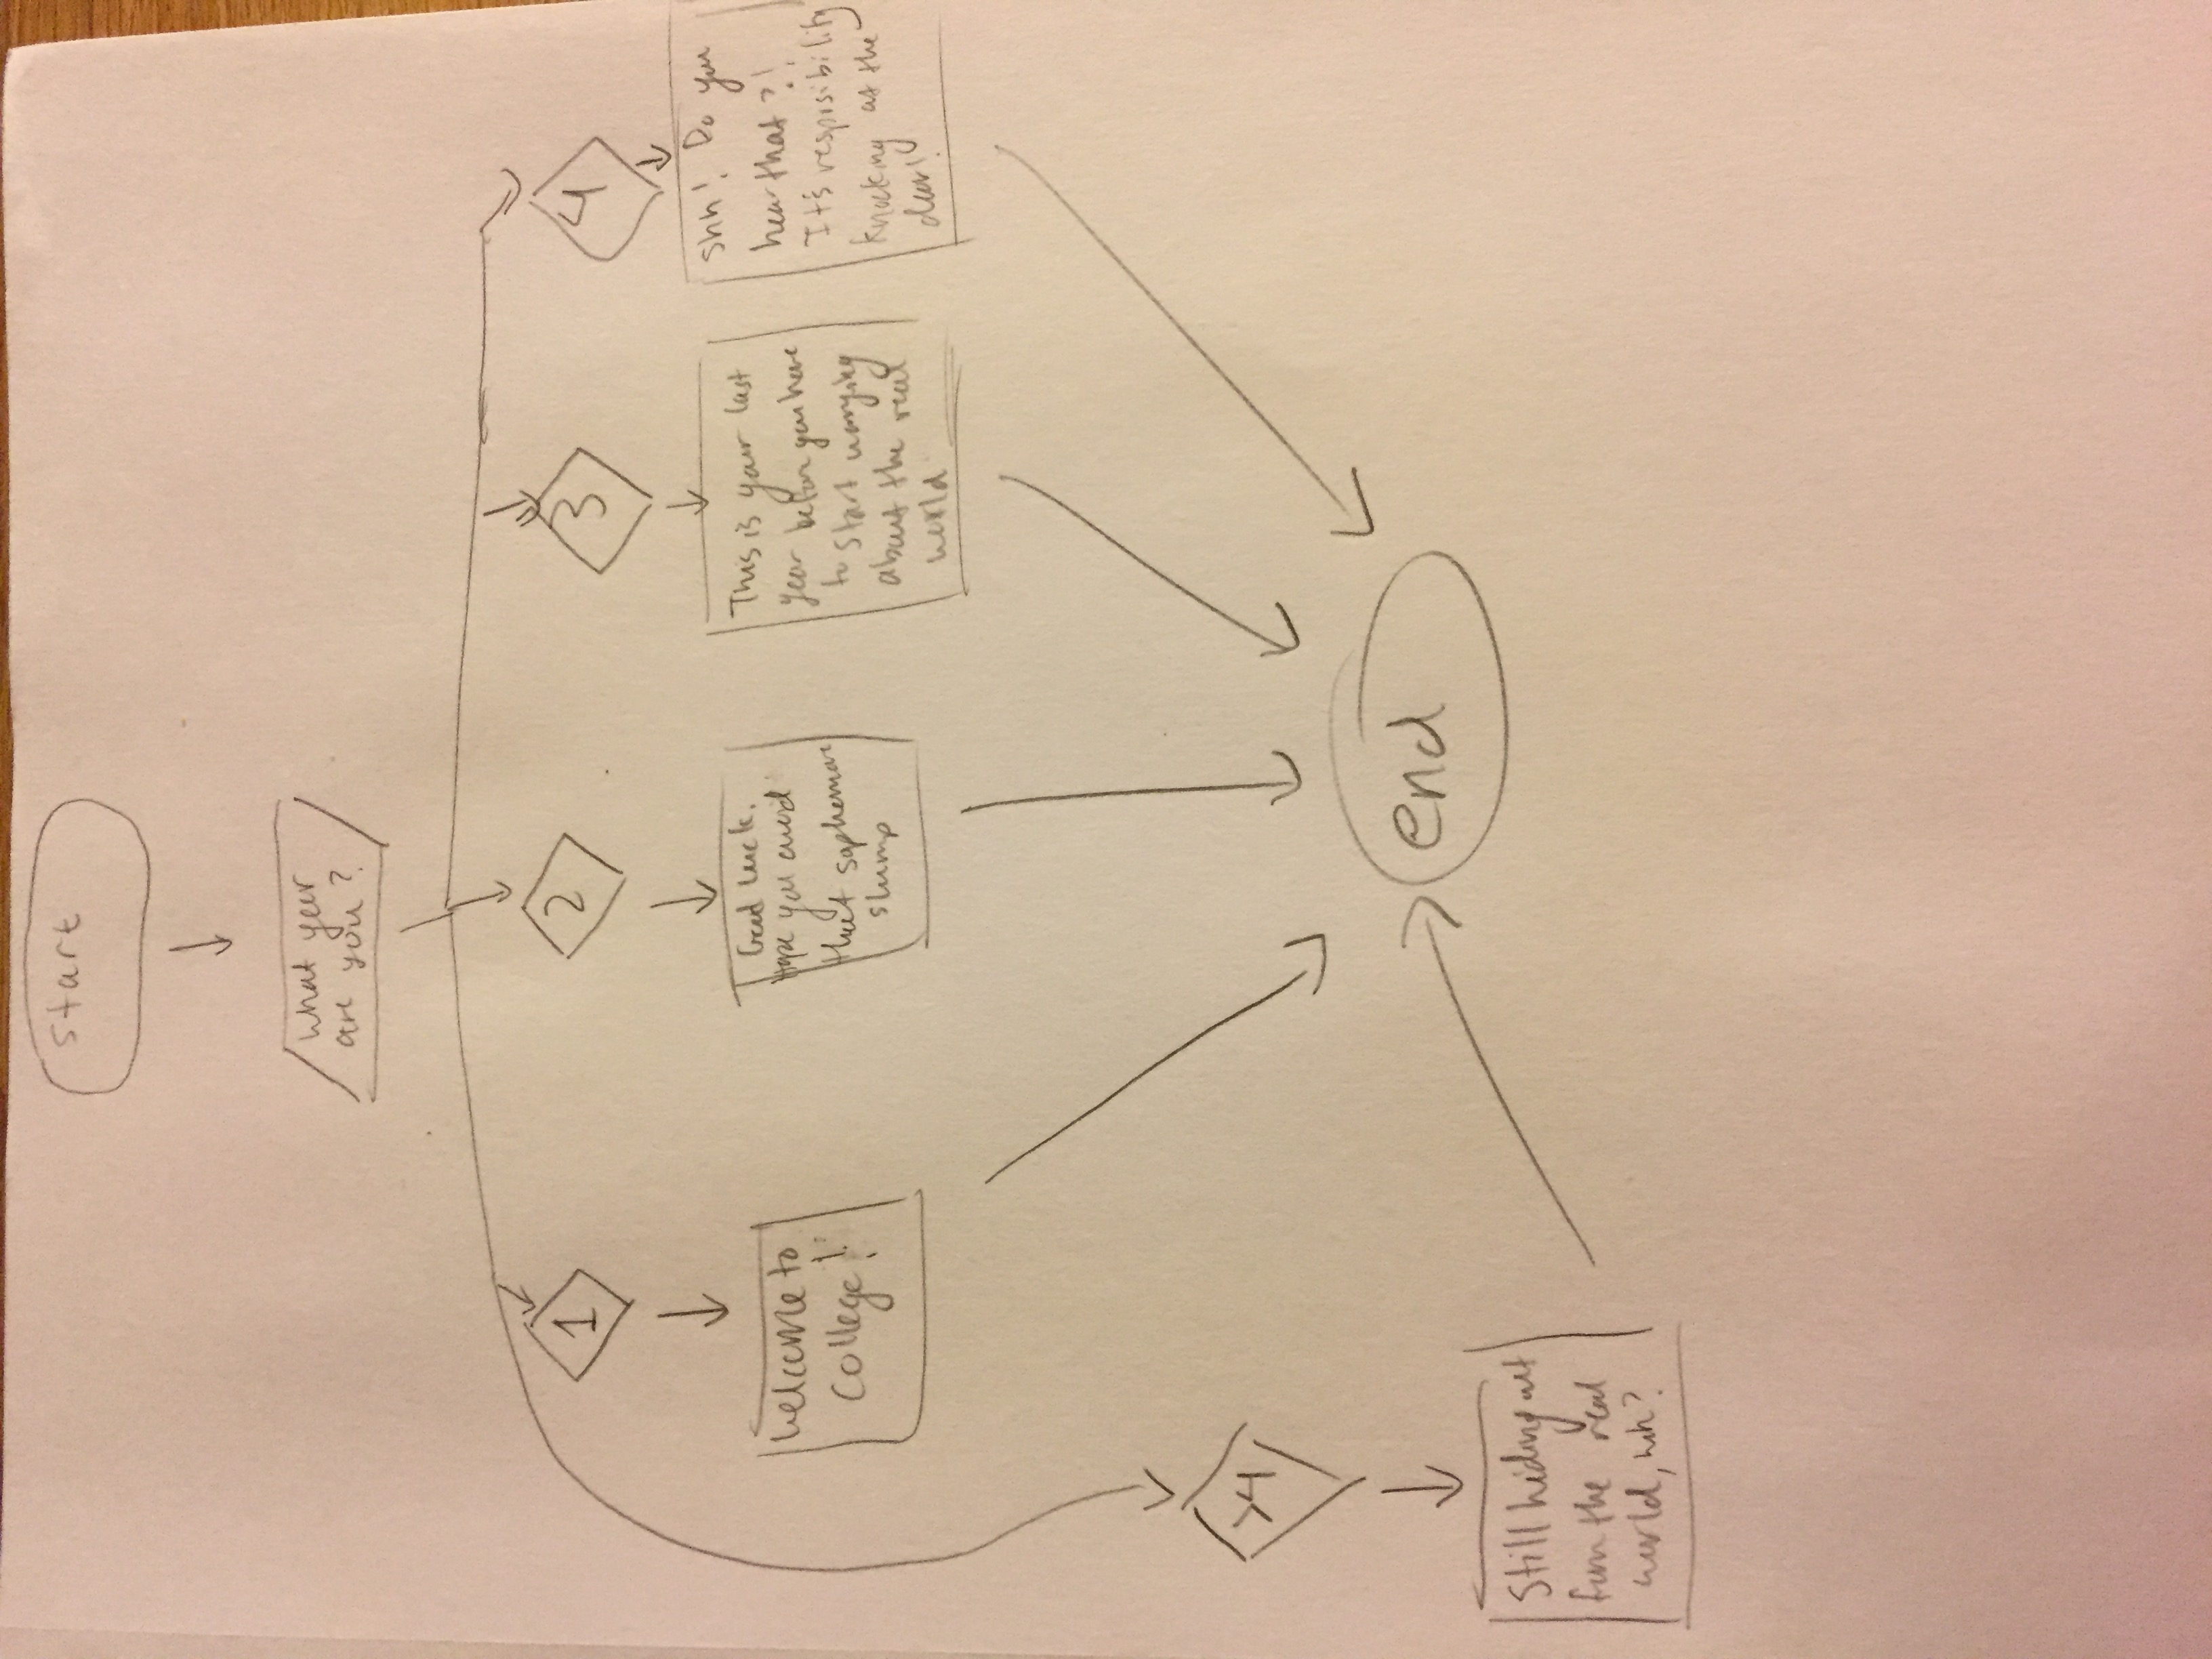 start
What year
are you?
1
2
3
4
Welcome to
College!
Good luck.
Hope you avoid
that sophemore
slump
This is your last
year before you have
to start worrying
about the real
world
Shh! Do you
hear that?!
It's resposibility
knocking at the
door!
>4
Still hiding out
from the real
world, huh?
end